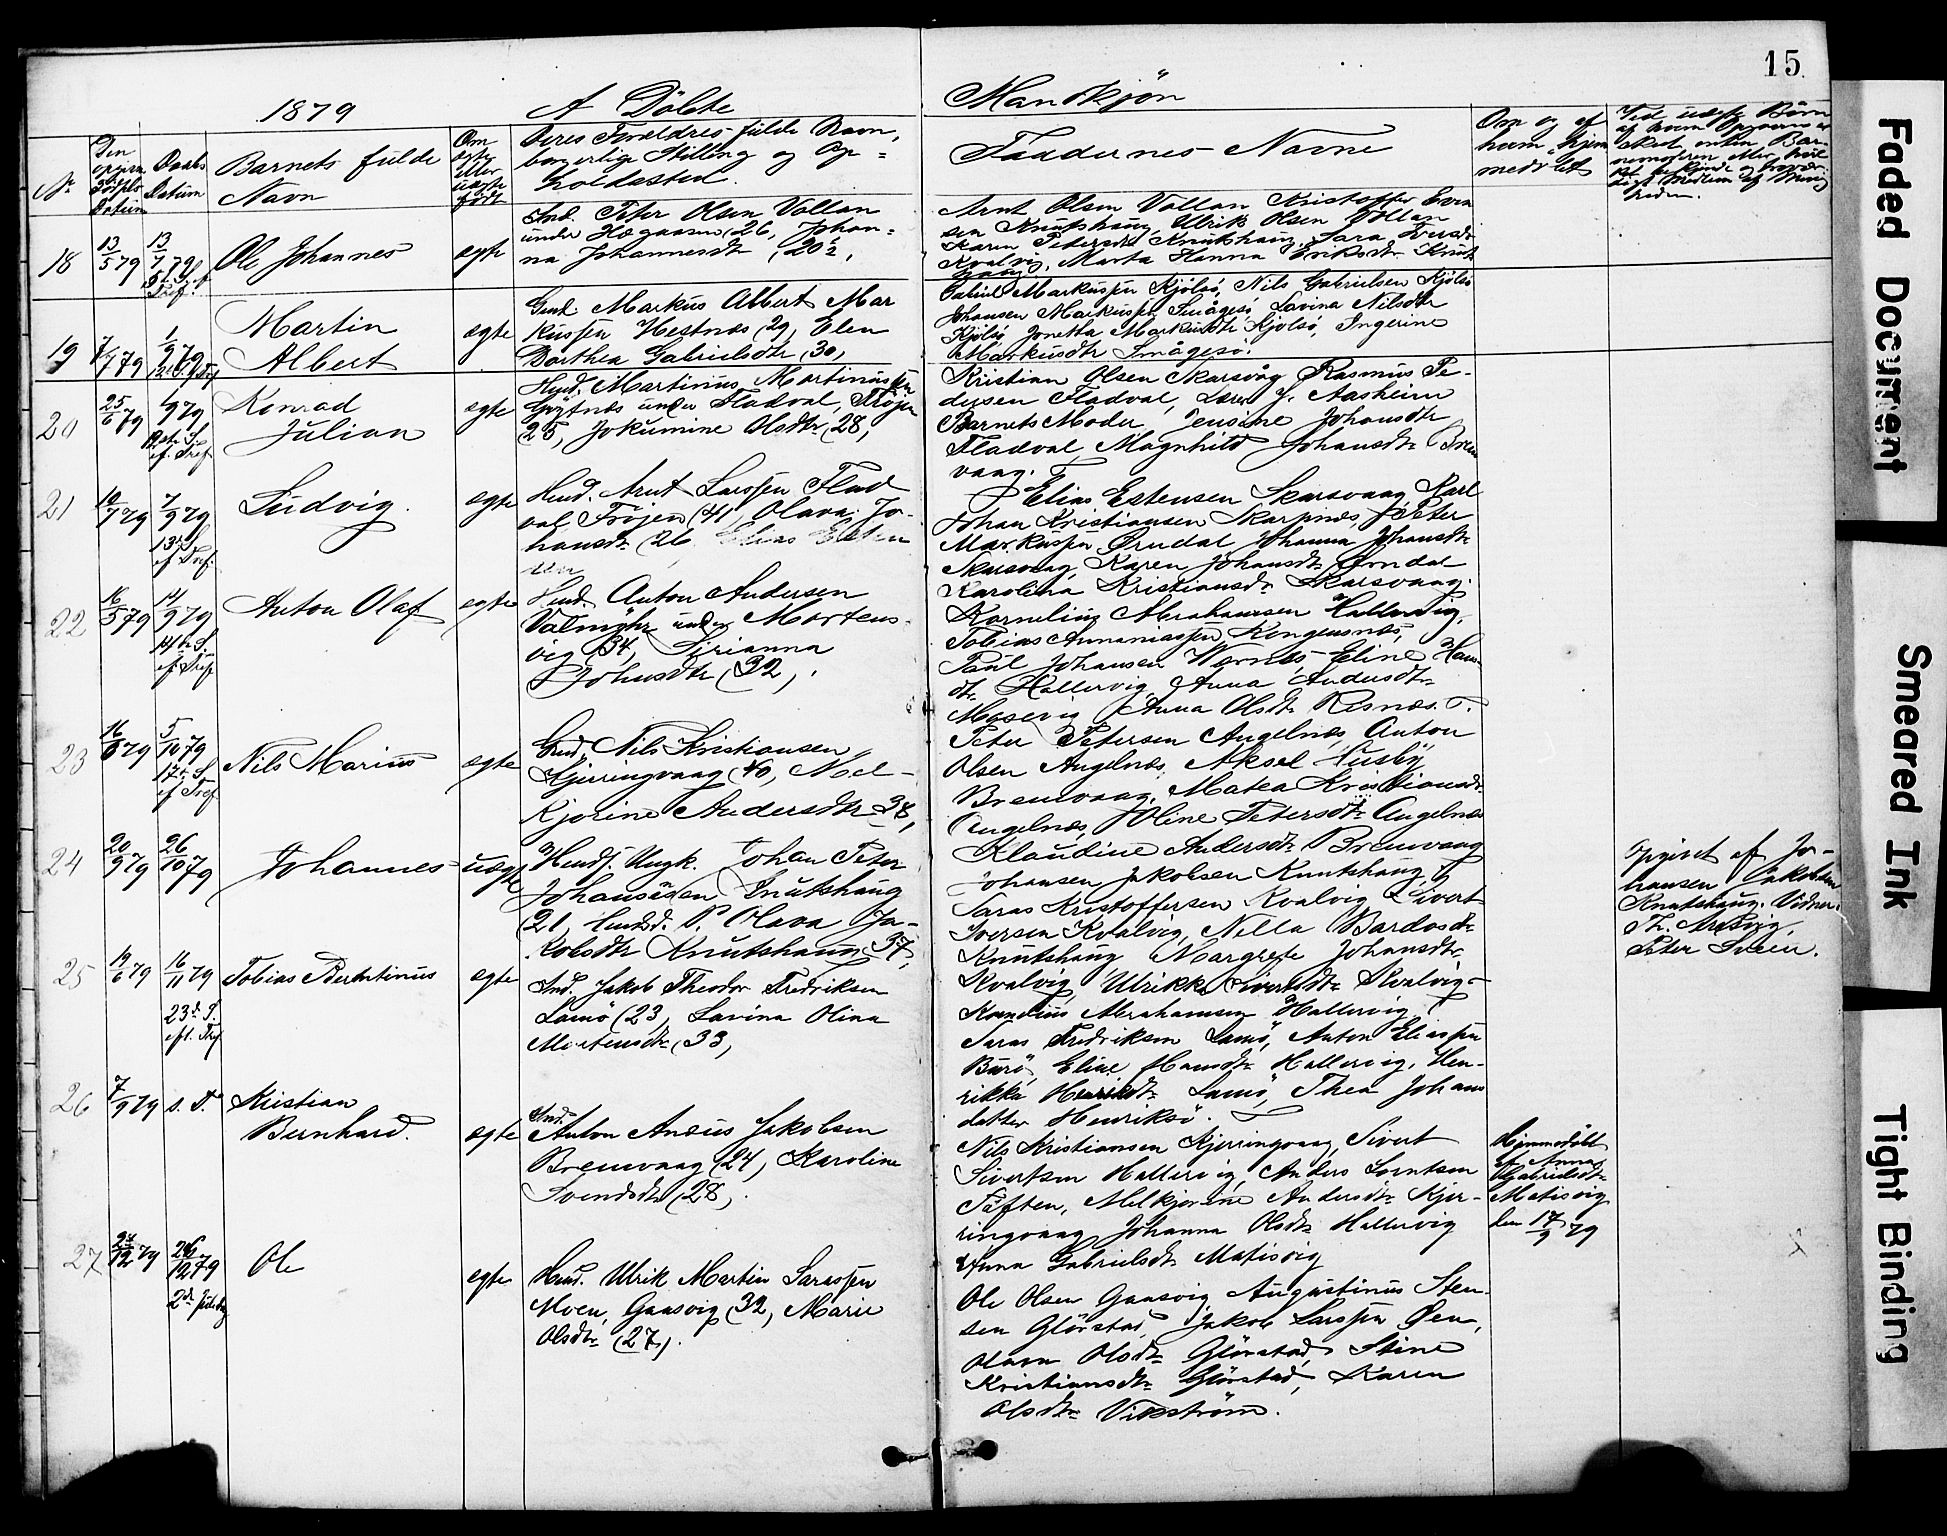 15
1879
A Döbte
Mandkjön
Nr
Den opgivne Fødsels Datum
Daabs Datum
Barnets fulde Navn
Om ægte eller uægte født
Deres Forældres fulde Navn, borgerlige Stilling og Opholdssted.
Faddernes Navne
Om og af hvem hjemmedøbt
18
13/5 79
13/7 79
Ole Johannes
egte
Ind. Peter Olsen Vollan
under Hegaasen (26, Johan-
na Johannesdtr (20½,
Arnt Olsen Vollan Kristoffer Even
sen Knutshaug, Ulrik Olsen Vollan
Karen Pedersdtr Knutshaug, Sara Iversdtr
Kvalvig, Marta Hanna Eriksdtr Knuts
haug
19
7/7 79
Martin
Albert
ægte
Gmd. Markus Albert Mar
kussen Hestnæs (29, Elen
Dorthea Gabrielsdtr (30,
Gabriel Markussen Kjölsö, Nils Gabrielsen Kjölsö
Johansen Markussen Smågesö, Lovina Nilsdtr
Kjölsö, Jonetta Markusdtr Kjölsö, Ingerine
Markusdtr Smågesö.
20
25/6 79
Konrad
Julian
egte
Husd. Martinus Martinussen
under Fladval, Fröjen
(25, Jokumine Olsdtr (28,
Kristian Olsen Skarsvåg Rasmus Pe-
dersen Fladval, Aasheim
Barnets Moder Jensine Johansdtr
Fladval, Magnhild Johansdtr Brem
vaag.
21
7/9 79
Ludvig.
egte
Husd. Arnt Larssen Flad
val Fröjen (41, Olava Jo-
hansdtr (26, Elias Esten
sen
Elias Estensen Skarsvaag, Karl
Johan Kristiansen Skarpnæs, Peter
Markussen Ørndal Johanna Johansdtr
Skarsvaag, Karen Johansdtr Ørndal
Karolina Kristiansdtr Skarsvaag.
22
16/5 79
14/9 79
Anton Olaf
egte
Husd. Anton Andersen
under Mortens-
vig (34, Sirianna
Johnsdtr (32,.
Kornelius Abrahamsen Hallervig,
Tobias Annaniassen Kongensnæs,
Paul Johansen Wernes, Eline Hans-
dtr Hallervig, Anna Andersdtr
Masevig, Anna Olsdtr Risnæs.
23
16/8 79
5/10 79
17de S.
ef Tref
Nils Marius
ægte
Gmd. Nils Kristiansen
Kjerringvaag (40, Mel-
kjorine Andersdtr (38,
Peter Petersen Angelnæs, Anton
Olsen Angelnæs, Aksel Husby
Bremvaag, Matea Kristiansdtr
Angelnæs, Oline Petersdtr Angelnæs
Klaudine Andersdtr Bremvaag
24
20/9 79
26/10 79
Johannes
uægte
Husdf. Ungk. Johan Peter
Johansøsen Knutshaug
(21, Husd. P. Olava Ja-
kobsdtr Knutshaug (37,
Johansen Jakobsen Knutshaug,
Saras Kristoffersen Kvalvig Sivert
Iversen Kvalvig, Nilla Bardosdtr
Knutshaug Margrete Johansdtr
Kvalvig, Ulrikke Sivertsdtr Kvalvig
opgivet af Jo-
hansen Jakobsen
Knutshaug. Vidner:
Peter Iversen.
25
19/6 79
16/11 79
23de S.
eft. Tref
Tobias Berntinus
egte
Ind. Jakob Theodor Fredriksen
Lamö (23, Lavina Olina
Mortensdtr (33,
Kornelius Abrahamsen Hallervig,
Saras Fredriksen Lamö, Anton Eliassen
Burö, Eline Hansdtr Hallervig, Hen-
rikka Henriksdtr Lamö, Thea Johans
datter Henriksö.
26
7/9 79
s. D.
Kristian
Bernhard.
ægte
Ind.
Anton Anæus Jakobsen
Bremvaag (24, Karoline
Svendsdtr (28,.
Nils Kristiansen Kjerringvaag, Sivert
Sivertsen Hallervig, Anders Lorntsen
Tuften, Melkjorine Andersdtr Kjer-
ringvaag Johanna Olsdtr Hallervig
Anna Gabrielsdtr Matisvig
Hjemmedöbt
af Anna
Gabrielsdtr
Matisvig
den 17/9 79
27
24/12 79
26/12 79
2den Juledag
Ole
egte
Husd. Ulrik Martin Larssen
Moen, Gaasvig (32, Marie
Olsdtr (27,.
Ole Olsen Gaasvig, Augustinus Sten-
sen Glörstad, Jakob Larssen Øen,
Olava Olsdtr Glörstad, Stine
Kristiansdtr Glörstad, Karen
Olsdtr Vikström.
Faded Document
Smeared Ink
Tight Binding